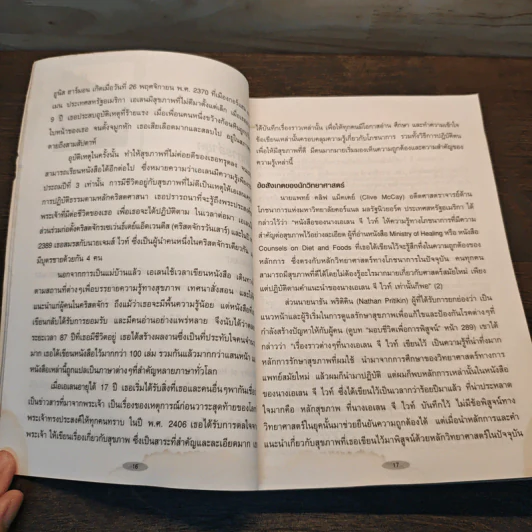 ยูนิส ฮาร์มอน เกิดเมื่อวันที่ 26 พฤศจิกายน พ.ศ. 2370 ที่เมือง
เมน ประเทศสหรัฐอเมริกา เอเลนมีสุขภาพที่ไม่ดีมาตั้งแต่เด็ก เมื่อ
9 ปี เธอประสบอุบัติเหตุที่ร้ายแรง เมื่อเพื่อนคนหนึ่งขว้างก้อนหิน
ใบหน้าของเธอ จนดั้งจมูกหัก เธอเสียเลือดมากและสลบไป
ตายถึงสามสัปดาห์
อุบัติเหตุในครั้งนั้น ทำให้สุขภาพที่ไม่ค่อยดีของเธอทรุดลง
สามารถเรียนหนังสือได้อีกต่อไป ซึ่งหมายความว่าเอเลนมีความรู้เพียง
ประถมปีที่ 3 เท่านั้น การมีชีวิตอยู่กับสุขภาพไม่ดีเป็นเหตุให้เอเลน
การปฏิบัติธรรมตามหลักคริสตศาสนา เธอปรารถนาที่จะรู้ถึงพระประสงค์
พระเจ้าที่มีต่อชีวิตของเธอ เพื่อเธอจะได้ปฏิบัติตาม ในเวลาต่อมา เอเลน
ส่วนร่วมก่อตั้งคริสตจักรเซเว่นธ์เดย์แอ๊ดเวนตีส (คริสตจักรวันเสาร์) และใน
2389 เธอสมรสกับนายเจมส์ ไวท์ ซึ่งเป็นผู้นำคนหนึ่งในคริสตจักรเดียวกัน
มีบุตรชายด้วยกัน 4 คน
นอกจากการเป็นแม่บ้านแล้ว เอเลนใช้เวลาเขียนหนังสือ
ตามสถานที่ต่างๆเพื่อบรรยายความรู้ทางสุขภาพ เทศนาสั่งสอน และ
แนะนำแก่ผู้คนในคริสตจักร ถึงแม้ว่าเธอจะมีพื้นความรู้น้อย แต่หนังสือ
เขียนกลับได้รับการยอมรับ และมีคนอ่านอย่างแพร่หลาย จึงนับได้ว่า
ระยะเวลา 87 ปีที่เธอมีชีวิตอยู่ เธอได้สร้างผลงานซึ่งเป็นที่ประทับใจคน
มาก เธอได้เขียนหนังสือไว้มากกว่า 100 เล่ม รวมกันแล้วมากกว่าแสนหน้า
หนังสือเหล่านี้ถูกแปลเป็นภาษาต่างๆที่สำคัญหลายภาษาทั่วโลก
เมื่อเอเลนอายุได้ 17 ปี เธอเริ่มได้รับสิ่งที่เธอและคนอื่นๆพากันเชื่อ
เป็นข่าวสารที่มาจากพระเจ้า เป็นเรื่องของเหตุการณ์ก่อนวาระสุดท้ายของโลก
พระเจ้าทรงประสงค์ให้ทุกคนทราบ ในปี พ.ศ. 2406 เธอได้รับการดลใจ
พระเจ้า ให้เขียนเรื่องเกี่ยวกับสุขภาพ ซึ่งเป็นสาระที่สำคัญและละเอียดมาก
16
ได้บันทึกเรื่องราวเหล่านั้น เพื่อให้ทุกคนมีโอกาสอ่าน ศึกษา และทำความเข้าใจ
ข้อเขียนเหล่านั้นครอบคลุมความรู้เกี่ยวกับโภชนาการ รวมทั้งวิธีการปฏิบัติตน
เพื่อให้มีสุขภาพที่ดี มีคนมากมายเริ่มมองเห็นความถูกต้องและความสำคัญของ
ความรู้เหล่านี้
ข้อสังเกตของนักวิทยาศาสตร์
นายแพทย์ คลิฟ แม็คเคย์ (Clive McCay) อดีตศาสตราจารย์ด้าน
โภชนาการแห่งมหาวิทยาลัยคอร์แนล มลรัฐนิวยอร์ค ประเทศสหรัฐอเมริกา ได้
กล่าวไว้ว่า "หนังสือของนางเอเลน จี ไวท์ ให้ความรู้ทางโภชนาการที่มีความ
สำคัญต่อสุขภาพไว้อย่างละเอียด ผู้ที่อ่านหนังสือ Ministry of Healing หรือ หนังสือ
Counsels on Diet and Foods ที่เธอได้เขียนไว้จะรู้สึกทึ่งในความถูกต้องของ
หลักการ ซึ่งตรงกับหลักวิทยาศาสตร์ทางโภชนาการในปัจจุบัน คนทุกคน
สามารถมีสุขภาพที่ดีได้โดยไม่ต้องรู้อะไรมากมายเกี่ยวกับศาสตร์สมัยใหม่ เพียง
แต่ปฏิบัติตามคำแนะนำของนางเอเลน จี ไวท์ เท่านั้นก็เพียงพอ" (2)
ส่วนนายนาธัน พริติคิน (Nathan Pritikin) ผู้ที่ได้รับการยกย่องว่า เป็น
แนวหน้าและผู้ริเริ่มในการดูแลรักษาสุขภาพเพื่อแก้ไขและป้องกันโรคต่างๆที่
กำลังสร้างปัญหาให้กับผู้คน (ดูบท "มอบชีวิตเพื่อการพิสูจน์" หน้า 289) เขาได้
กล่าวว่า "เรื่องราวต่างๆที่นางเอเลน จี ไวท์ เขียนไว้ เป็นความรู้ที่น่าทึ่งมาก
หลักการรักษาสุขภาพที่ผมใช้ นำมาจากการศึกษาของวิทยาศาสตร์ทางการ
แพทย์สมัยใหม่ แล้วผมก็นำมาปฏิบัติ แต่ผมก็พบหลักการเหล่านั้นในหนังสือ
ของนางเอเลน จี ไวท์ ซึ่งได้เขียนไว้เป็นเวลากว่าร้อยปีมาแล้ว ที่น่าประหลาด
ใจมากคือ หลักสุขภาพ ที่นางเอเลน จี ไวท์ บันทึกไว้ ไม่มีข้อพิสูจน์ทาง
วิทยาศาสตร์ในยุคนั้นมาช่วยยืนยันความถูกต้องได้ แต่เมื่อนำหลักการและคำ
แนะนำเกี่ยวกับสุขภาพที่เธอเขียนไว้มาพิสูจน์ด้วยหลักวิทยาศาสตร์ในปัจจุบัน
17